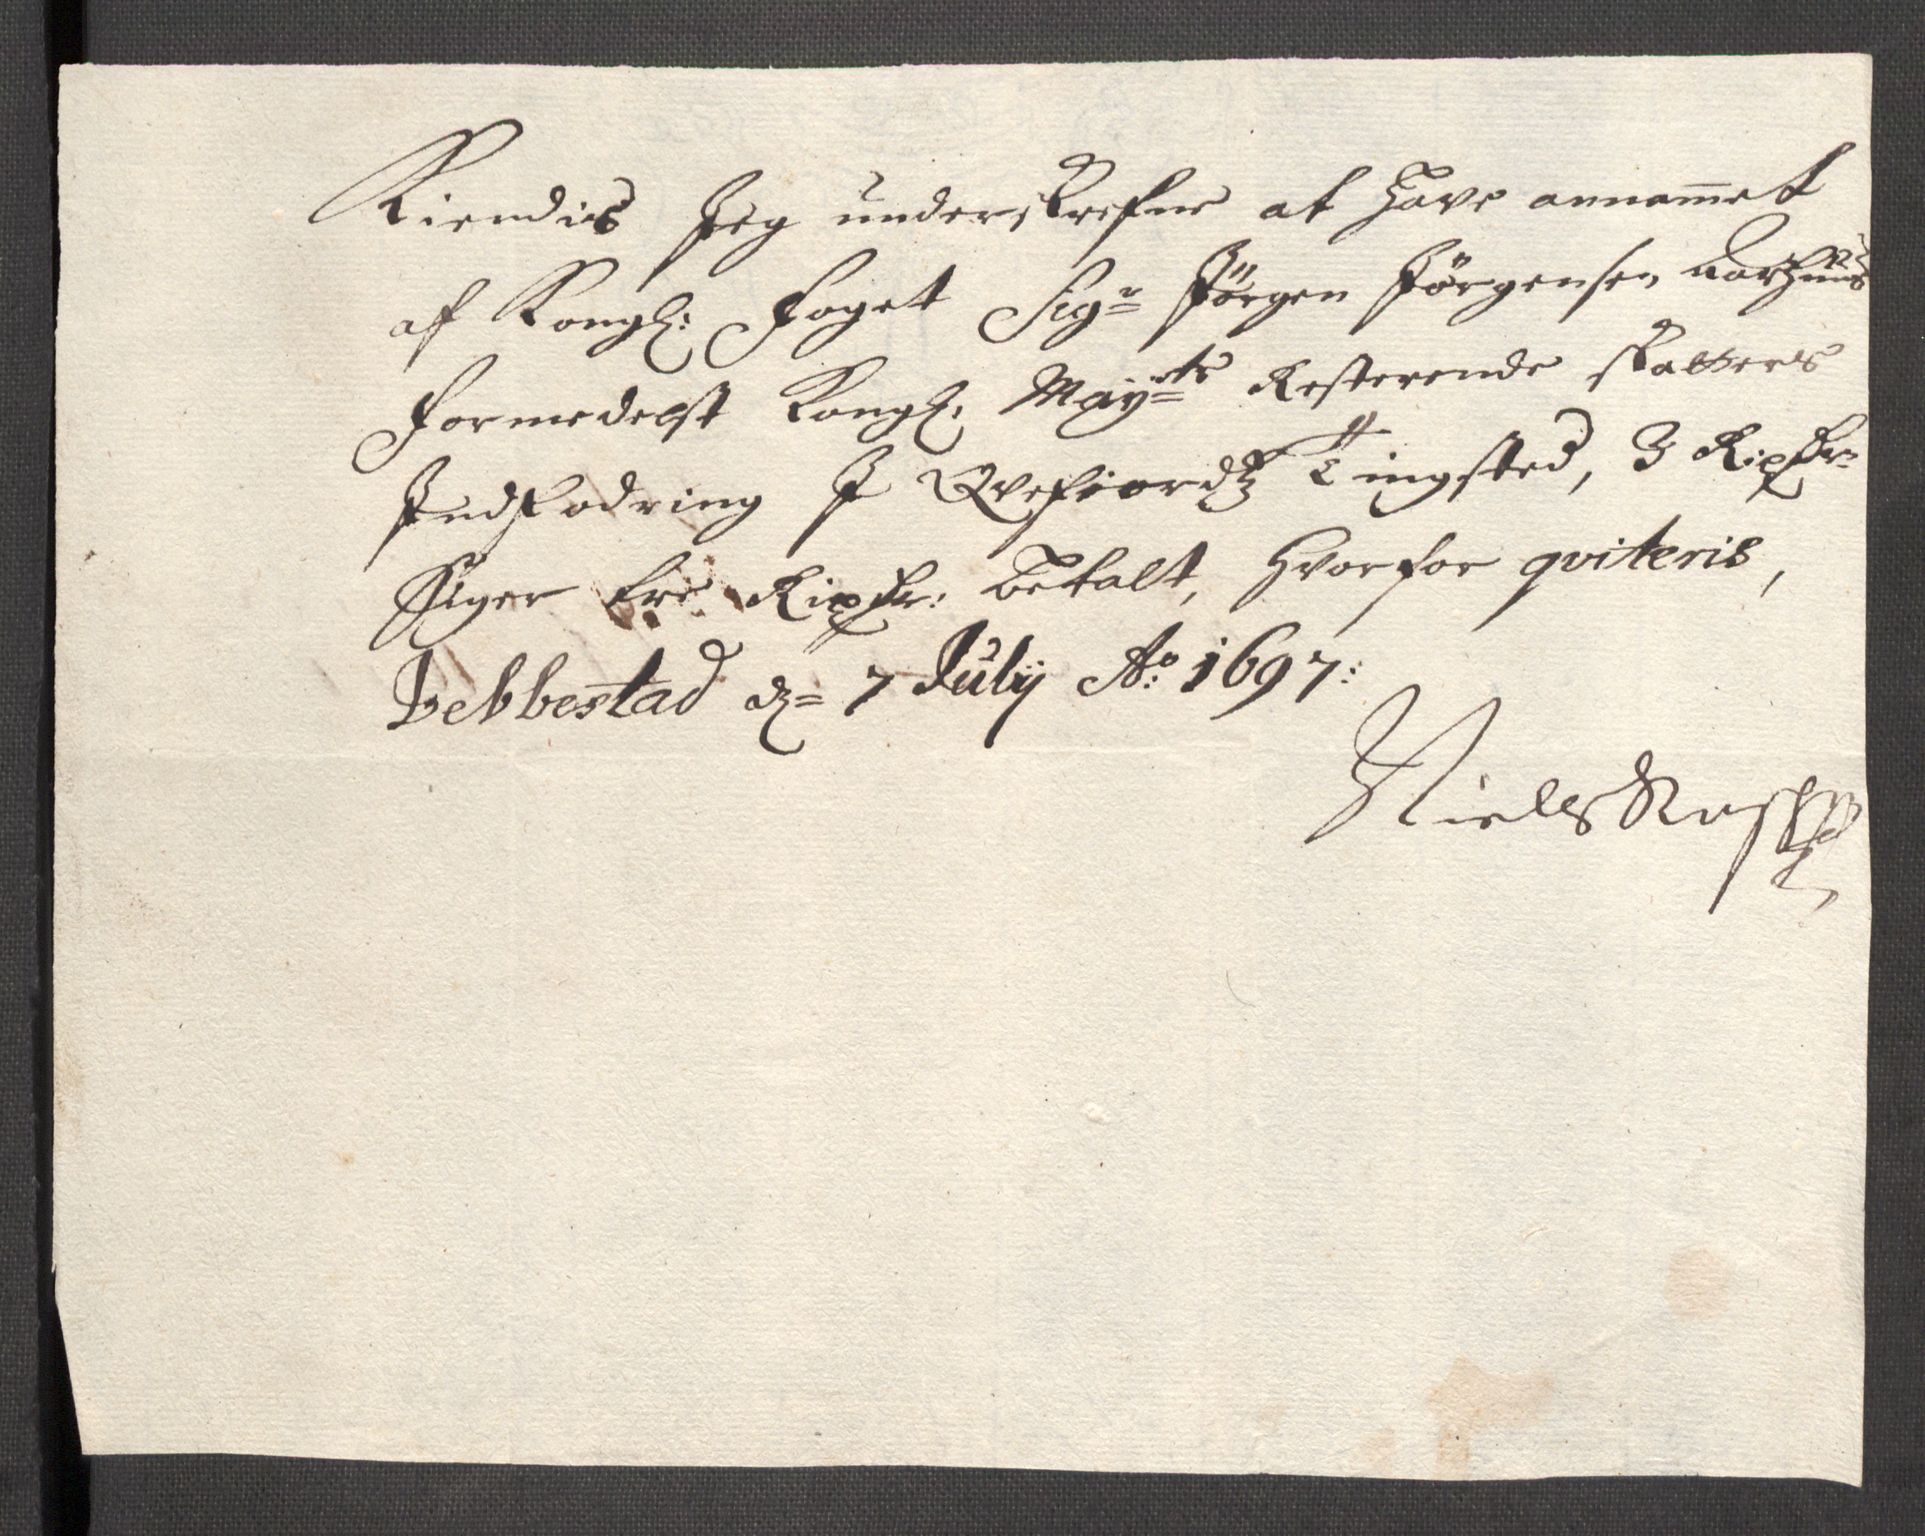 Kiendis Jeg underskrefne at Have annam̅et
af Kongl: Foget Sigr Jörgen Jörgensen Aarhuus
formedelst Kongl: Mayts Resterende skatters
Indfodring I Qvefiordtz Tingsted, 3 Rixdr
Siger tre Rixdr: betalt, hvorfor qviteris,
Bebbestad d 7 Julij Ao: 1697:
Niels